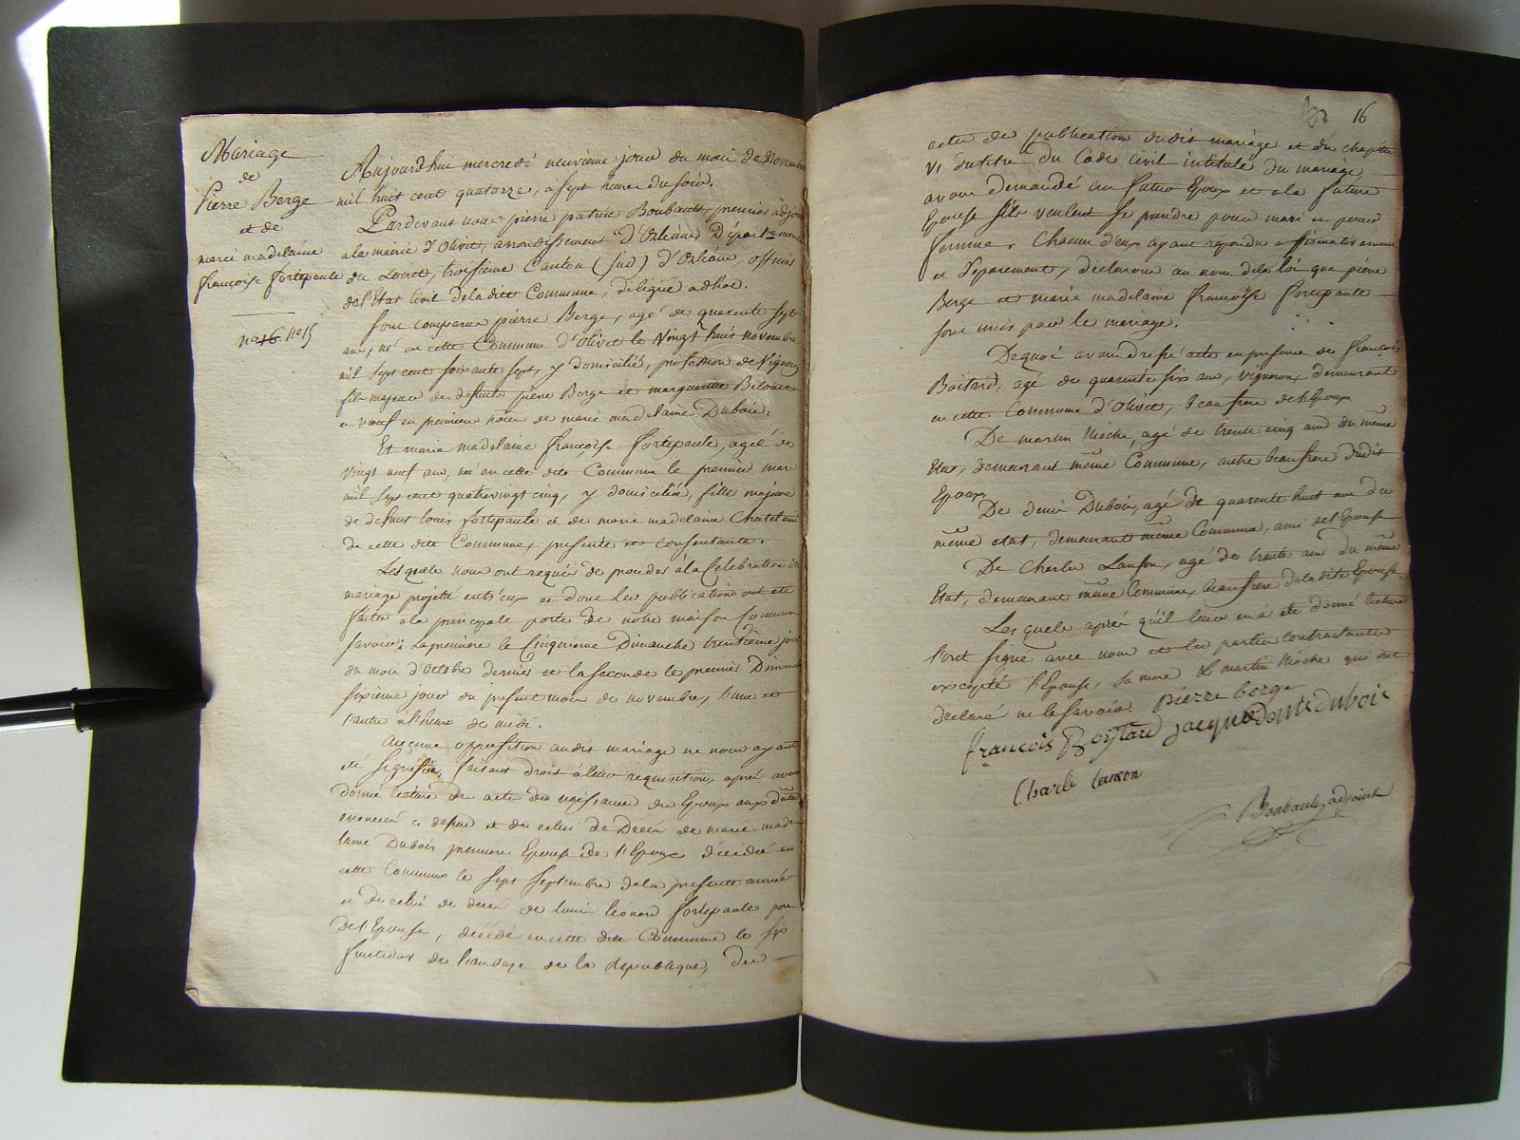 Mariage
de
Pierre Berge
et de
marie madelaine
françoise fortepaule
no 16. no 15
Aujourd'hui mercredi neuvième jour du mois de Novembre
mil huit cent quatorze, à sept heures du soir.
Pardevant nous pierre patrice Boubault, premier adjoint
a la mairie d'Olivet, arrondissement d'Orléans Département
du Loiret, troisième Canton (sud) d'Orléans, officier
de l'Etat Civil de la dite Commune, délégué adhoc.
Sont comparus pierre Berge, agé de quarente sept
ans, né en cette Commune d'Olivet le Vingt huit novembre
mil sept cent soixante sept, y domicilié, profession de Vigneron
fils majeur de defunts pierre Berge et marguerite
et veuf en premieres noces de marie madelaine Dubois.
Et marie madelaine françoise fortepaule, agée de
vingt neuf ans, née en cette dite Commune le premier mars
mil sept cent quatrevingt cinq, y domiciliée, fille majeure
de defunt louis fortepaule et de marie madelaine
de cette dite Commune, presente et consentante.
Lesquels nous ont requis de proceder à la Celebration du
mariage projetté entr'eux et dont les publications ont été
faites a la principale porte de notre maison Commune
savoir: la premiere le Cinquieme Dimanche trentième jour
du mois d'Octobre dernier et la seconde le premier Dimanche
sixieme jour du present mois de novembre, l'une et
l'autre a l'heure de midi.
Aucune opposition audit mariage ne nous ayant
été signifiée, faisant droit à leur requisition, après avoir
donné lecture des actes de naissance des Epoux aux dates
enoncées ci dessus et de celui de Decès de marie made
laine Dubois premiere Epouse de l'Epoux décédée en
cette Commune le sept septembre de la presente année
et de celui de decès de louis leonard fortepaule pere
de l'Epouse, décédé en cette dite Commune le six
fructidor de l'an de la république, des
16
actes de publication dudit mariage et du chapitre
VI du titre du Code Civil intitulé du mariage,
avons demandé au futur Epoux et a la future
Epouse s'ils veulent se prendre pour mari et pour
femme. Chacun d'eux ayant repondu affirmativement
et séparement, declarons au nom de la loi que pierre
Berge et marie madelaine françoise fortepaule
sont unis par le mariage.
De quoi avons dressé acte en presence de françois
Boitard, agé de quarente six ans, vigneron, demeurant
en cette Commune d'Olivet, beau frere de l'Epoux
De martin Mêche, agé de trente cinq ans du même
Etat, demeurant même Commune, autre beau frere dudit
Epoux
De denis Dubois, agé de quarente huit ans du
même etat, demeurant même Commune, ami de l'Epouse
De Charles Lanson, agé de trente ans du même
Etat, demeurant même Commune, beau frere de la dite Epouse
Lesquels après qu'il leur en a été donné lecture
l'ont signé avec nous et les parties contractantes
excepté l'Epouse, sa mere et martin Mêche qui ont
declaré ne le savoir. pierre berge
françois Boistard jacque denis dubois
Charle lanson
Boubault, adjoint